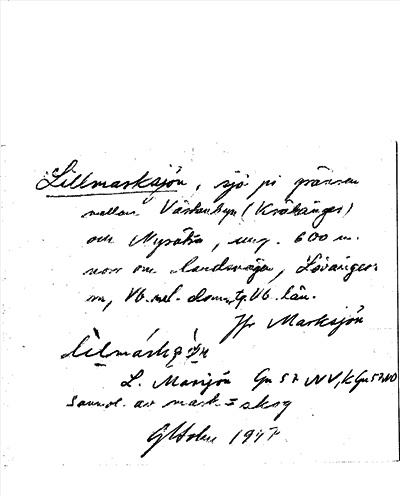 Lillmarksjön, sjö på gränsen
mellan Västanbyn (Kräkånger)
och Nysätra, ung. 600 m.
norr om landsvägen, Lövångers
sn, Vb. mel. doms. tg. Vb. län.
Jfr Marksjön
L. Marsjön Gn 57 NV, K Gn 57 NO
Sannol. av mark = skog
G Holm 1947